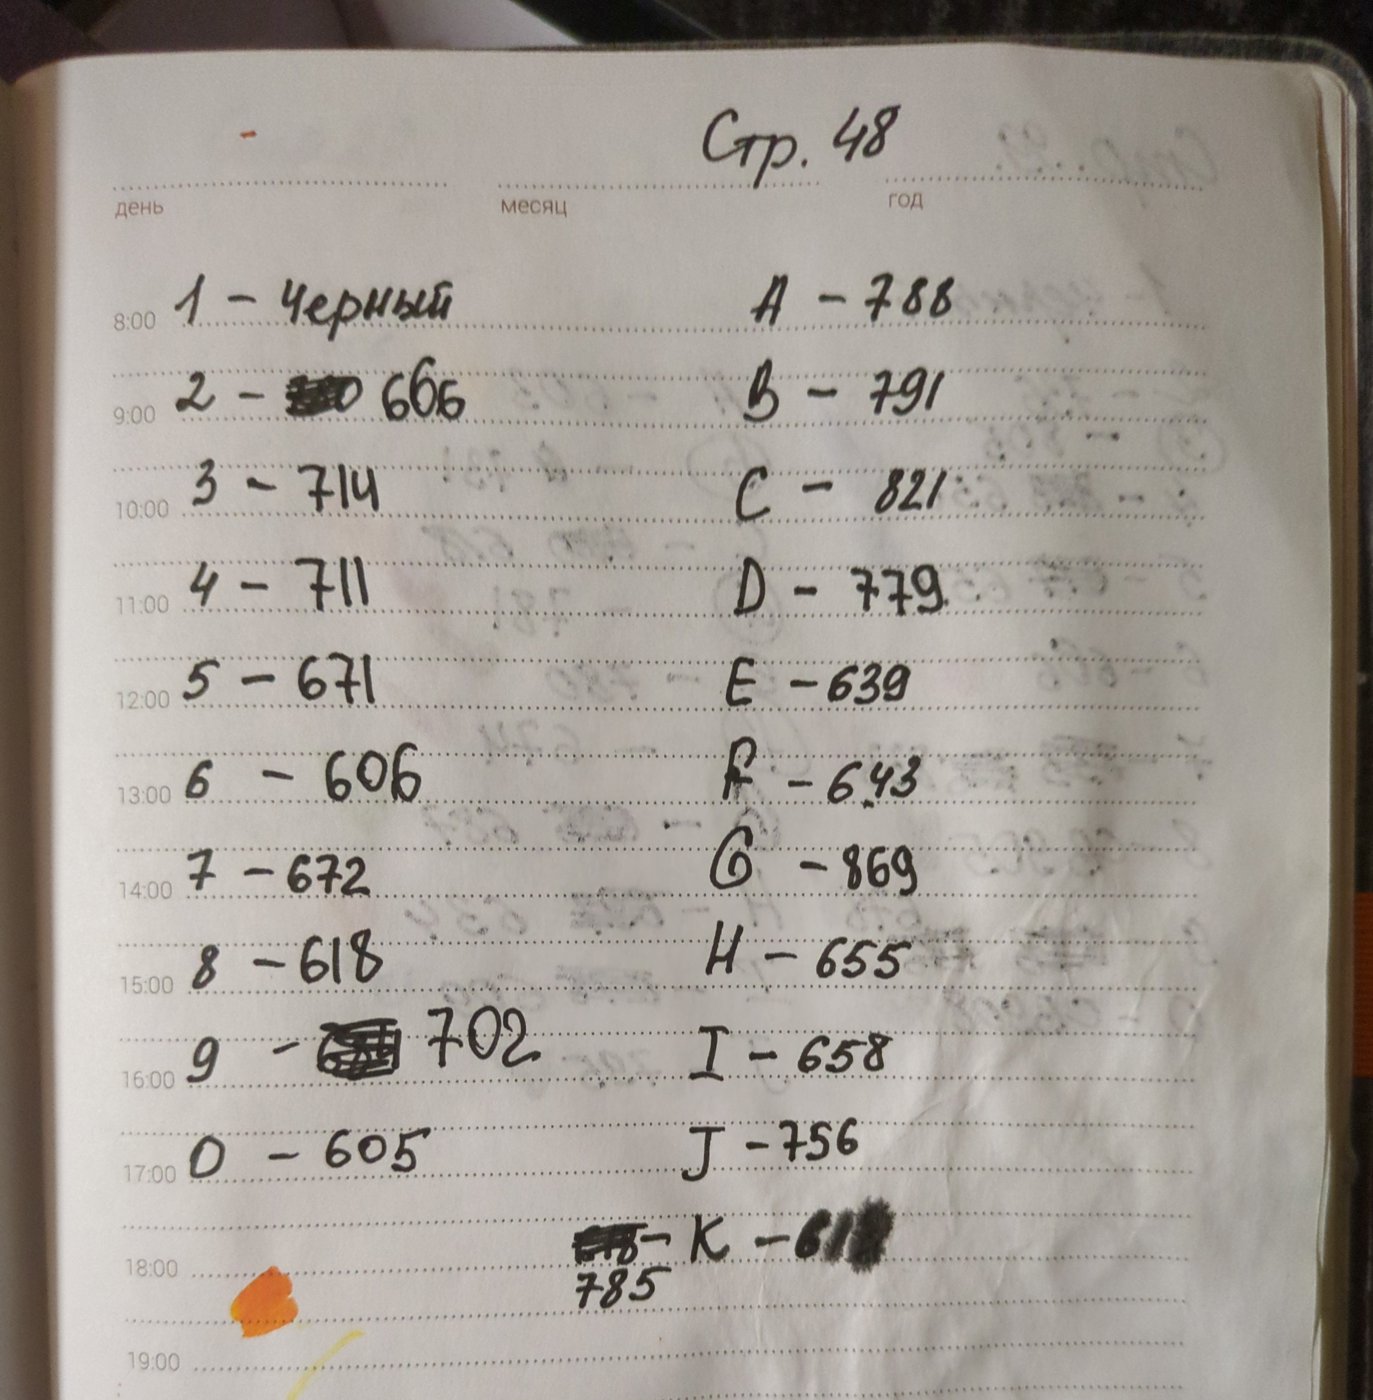 Стр. 48
день месяц год
8:00 1 - Черный A - 788
9:00 2 - 666 B - 791
10:00 3 - 714 C - 821
11:00 4 - 711 D - 779
12:00 5 - 671 E - 639
13:00 6 - 606 F - 643
14:00 7 - 672 G - 869
15:00 8 - 618 H - 655
16:00 9 - 702 I - 658
17:00 0 - 605 J - 756
18:00 - K -
785
19:00